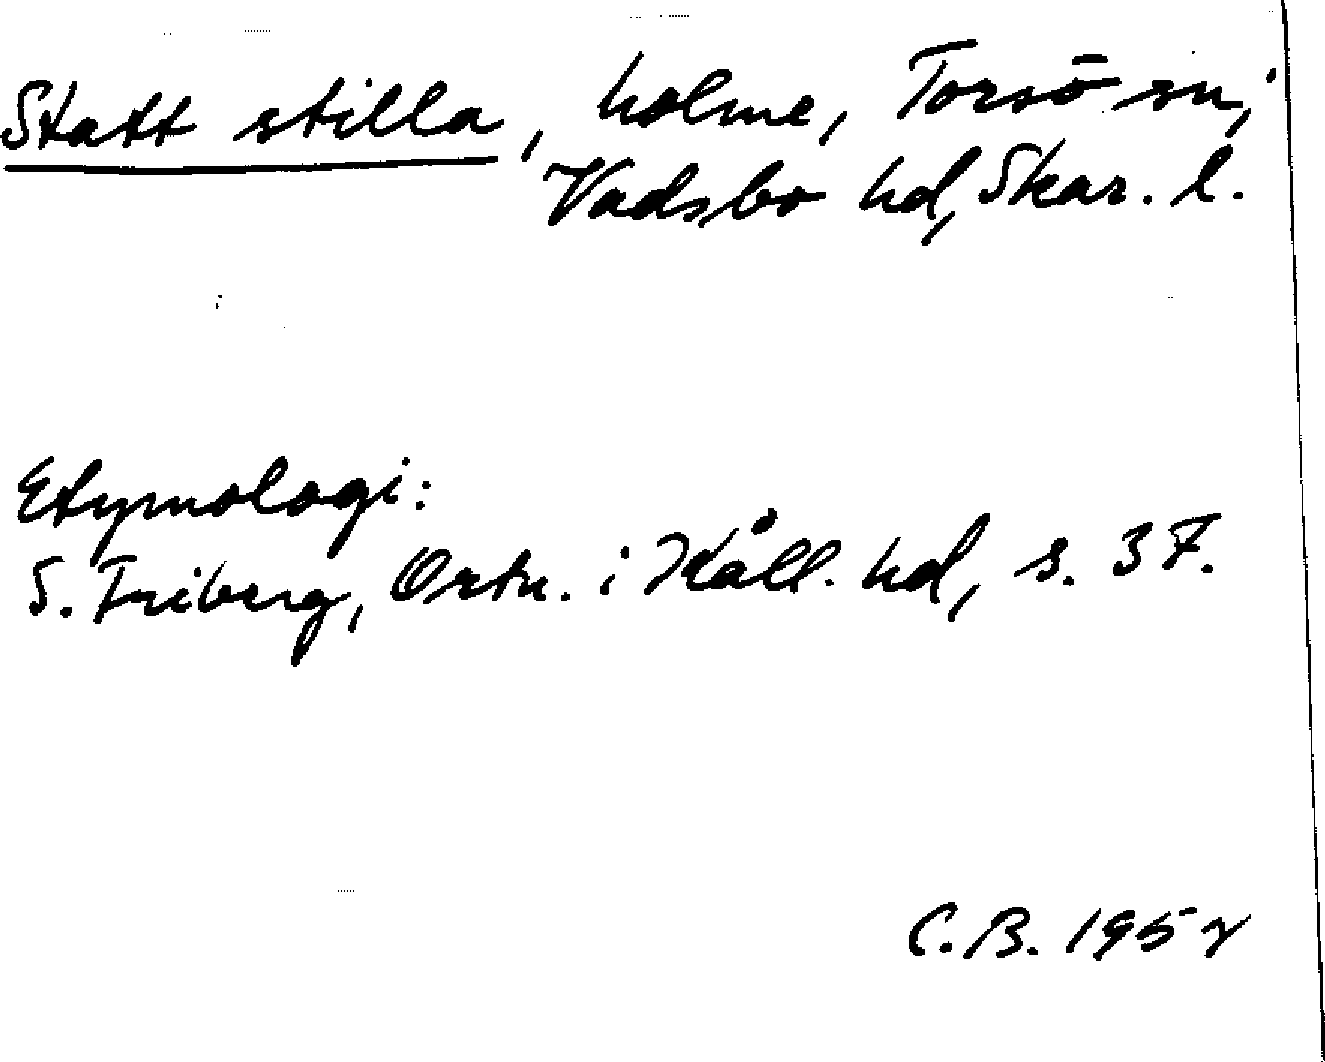 Statt stilla, holme, Torsö sn,
Vadsbo hd, Skar. l.
Etymologi:
S. Friberg, Ortn. i Kåll. hd, s. 37.
C.B. 1952